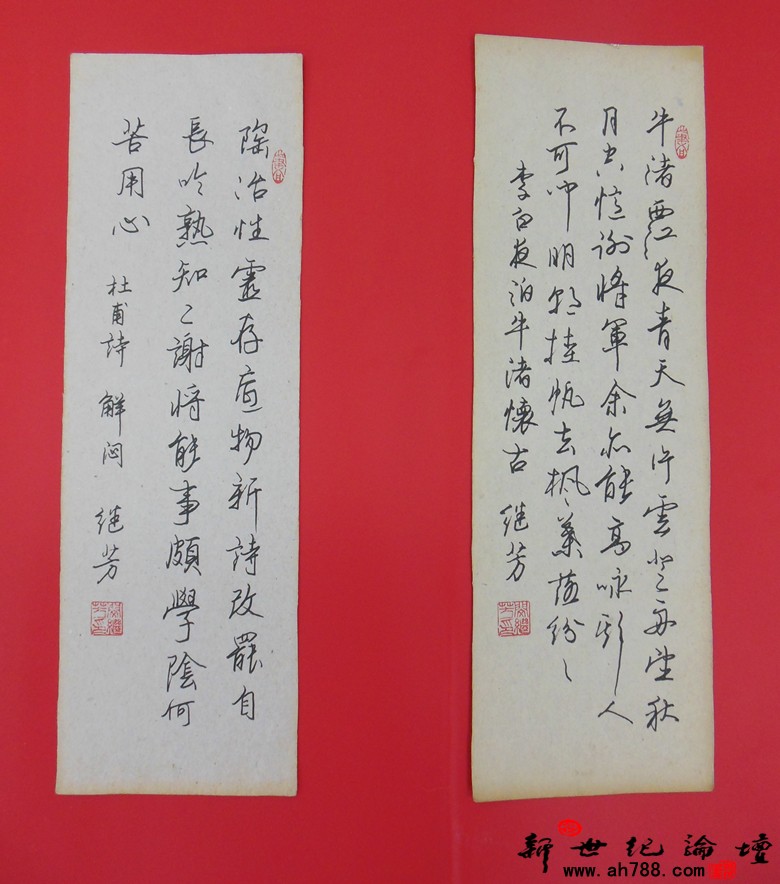 牛渚西江夜青天無片雲登舟望秋
月空憶謝將軍余亦能高咏斯人
不可闻明朝挂帆去楓葉落紛〻
李白夜泊牛渚懷古 继芳
陶冶性靈存底物新詩改罷自
長吟熟知二謝將能事頗學陰何
苦用心 杜甫詩 解闷 继芳
新世纪論壇
www.ah788.com